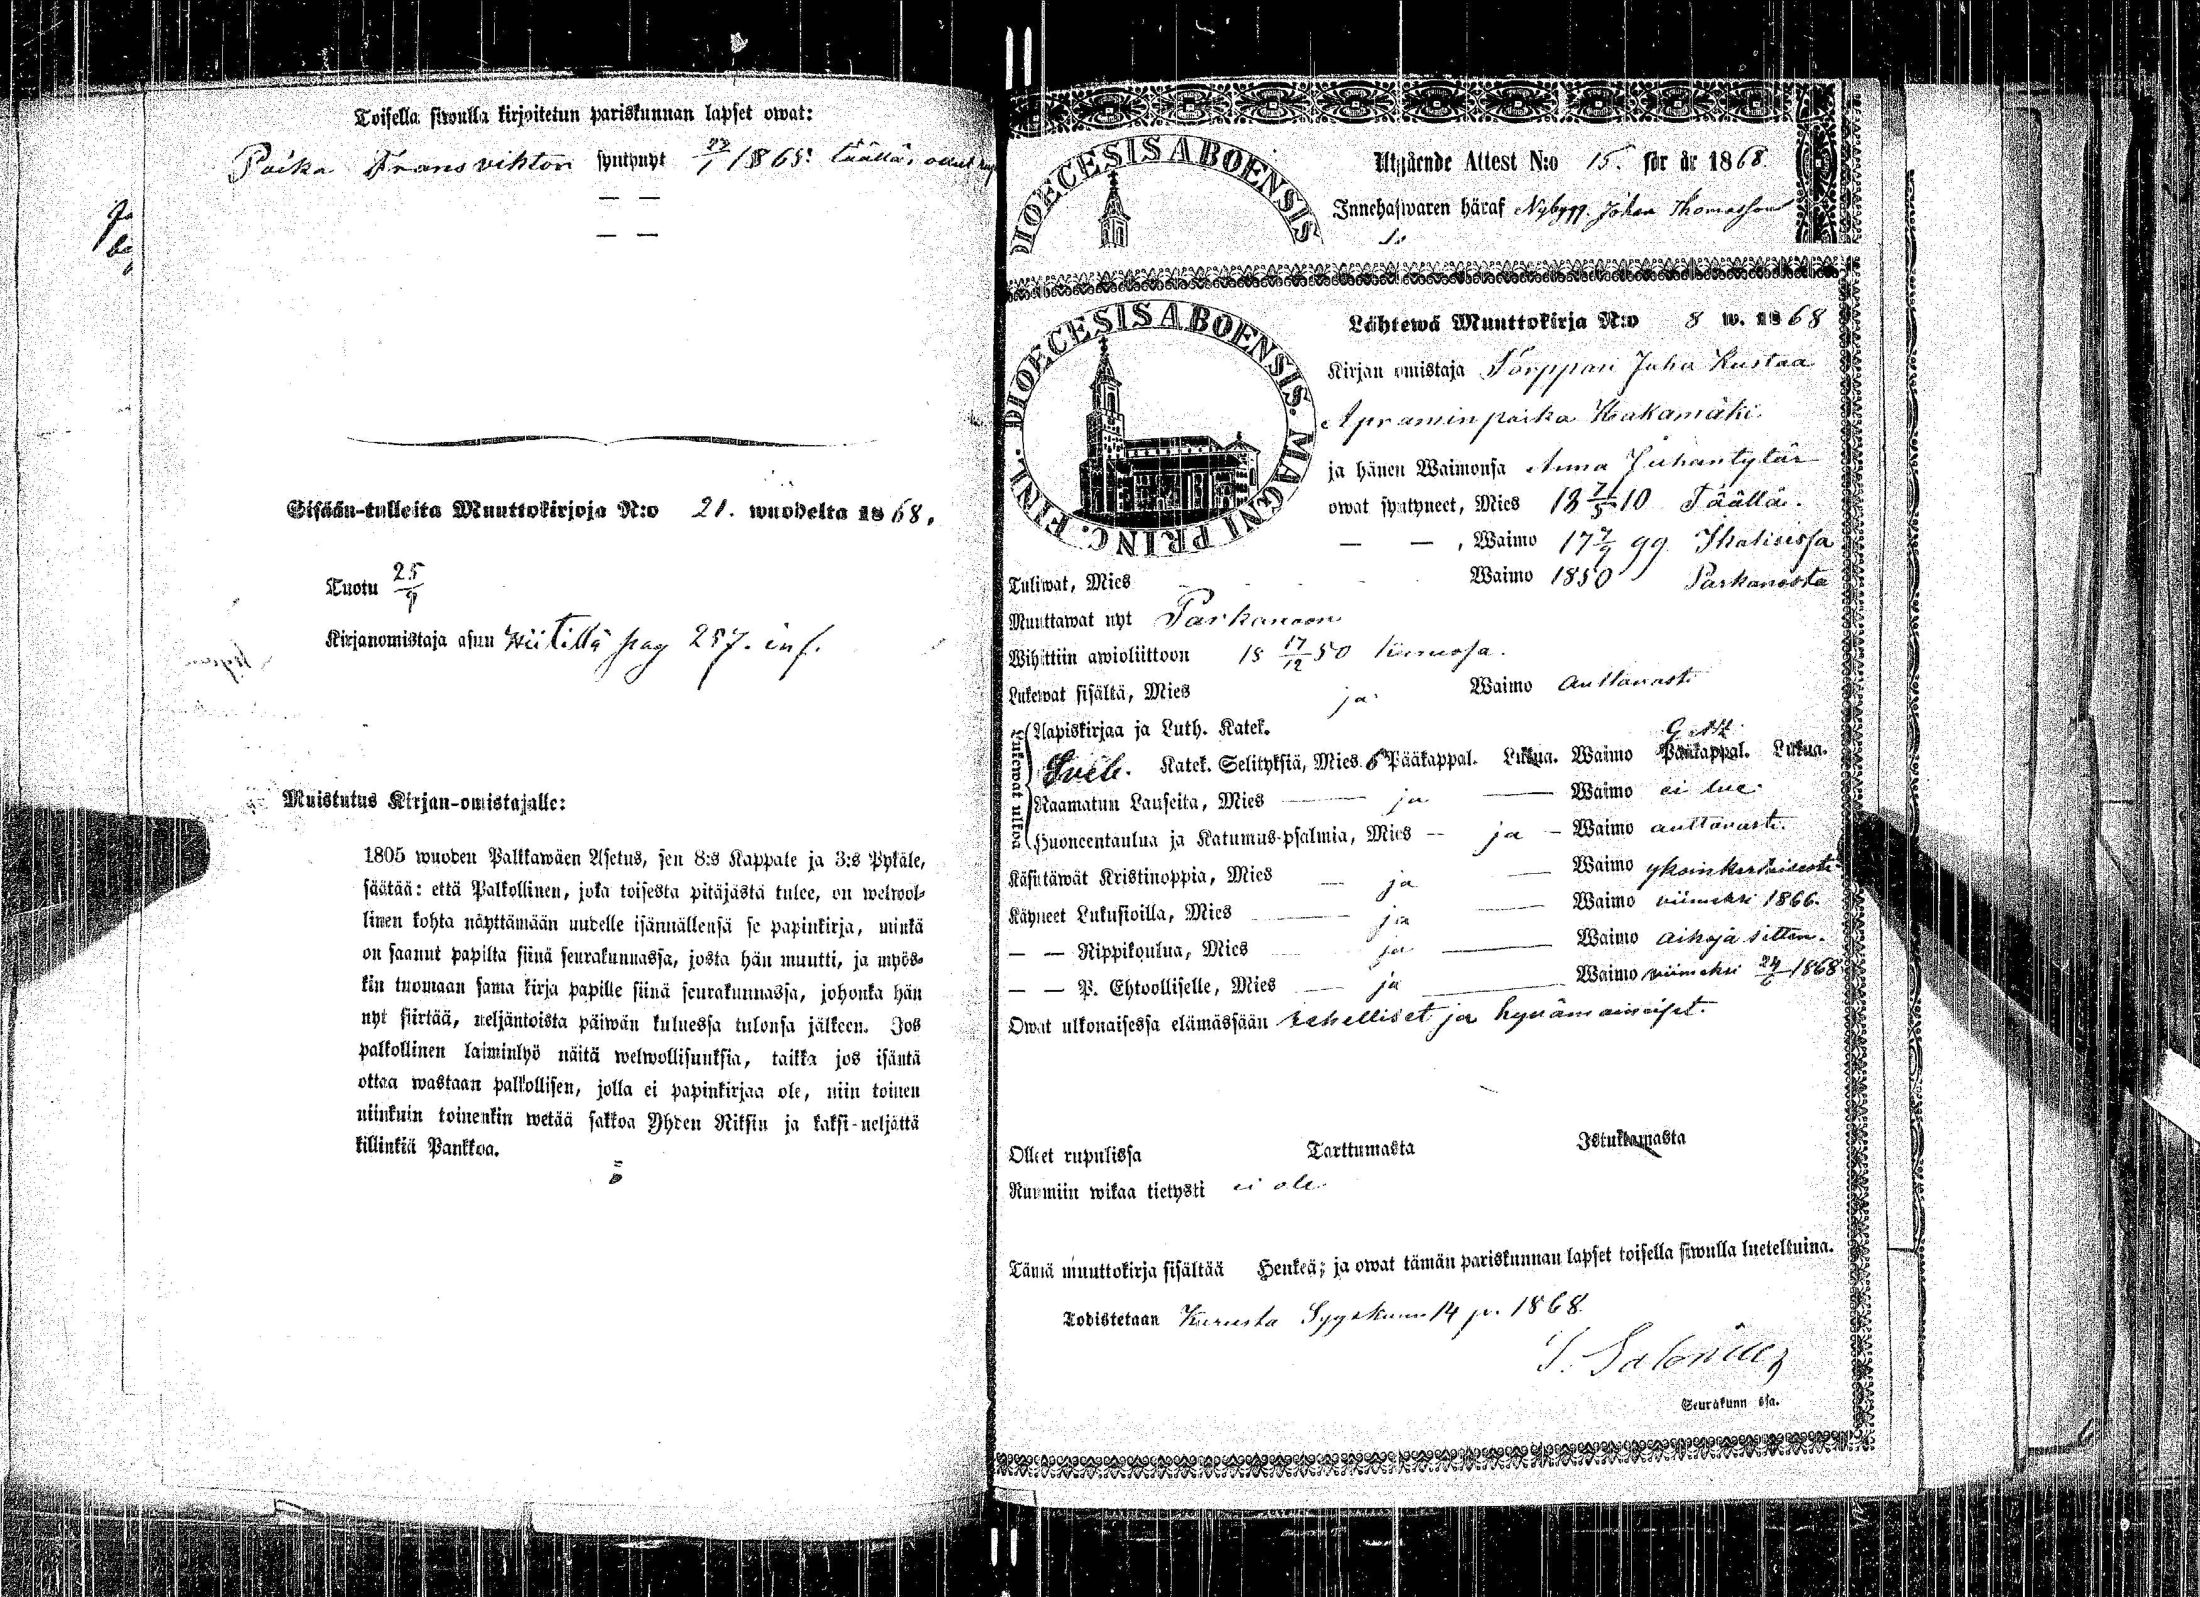 Toisella siwulla kirjoitetun pariskunnan lapset owat:
Poika Frans viktor syntynyt 27/1 1865. täällä, ollut
— —
— —
Sisään-tulleita Muuttokirjoja N:o 21. wuodelta 1868.
Tuotu 25/9
Kirjanomistaja asuu pag 257. inf.
Muistutus Kirjan-omistajalle:
1805 wuoden Palkkawäen Asetus, sen 8:s Kappale ja 3:s Pykäle,
säätää: että Palkollinen, joka toisesta pitäjästä tulee, on welwol-
linen kohta näyttämään uudelle isännällensä se papinkirja, minkä
on saanut papilta siinä seurakunnassa, josta hän muutti, ja myös-
kin tuomaan sama kirja papille siinä seurakunnassa, johonka hän
nyt siirtää, neljäntoista päiwän kuluessa tulonsa jälkeen. Jos
palkollinen laiminlyö näitä welwollisuuksia, taikka jos isäntä
ottaa wastaan palkollisen, jolla ei papinkirjaa ole, niin toinen
niinkuin toinenkin wetää sakkoa Yhden Riksin ja kaksi-neljättä
killinkiä Pankkoa.
DIOECESIS ABOENSIS
Utgående Attest N:o 15. för år 1868.
Innehafwaren häraf Nybygg. Johan Thomasson
DIOECESIS ABOENSIS. MAGNI PRINC. FINL.
Lähtewä Muuttokirja N:o 8 w. 1868
Kirjan omistaja Torppari Juha Kustaa
Apramin poika Kakamäki.
ja hänen Waimonsa Anna Juhantytär
owat syntyneet, Mies 18 7/5 10 Täällä.
— — , Waimo 17 7/9 99 Ikalisissa
Tuliwat, Mies Waimo 1850 Parkanosta
Muuttawat nyt Parkanoon
Wihittiin awioliittoon 18 17/12 50 Kurussa.
Lukewat sisältä, Mies ja Waimo auttavasti
Lukewat ulkoa
Aapiskirjaa ja Luth. Katek.
Sveb. Katek. Selityksiä, Mies 6 Pääkappal. Lukua. Waimo Pääkappal. Lukua.
Raamatun Lauseita, Mies — ja — Waimo ei lue.
Huoneentaulua ja Katumus-psalmia, Mies — ja — Waimo auttavasti.
Käsittäwät Kristinoppia, Mies — ja — Waimo yksinkertaisesti
Käyneet Lukusioilla, Mies — ja — Waimo viimeksi 1866.
— — Rippikoulua, Mies ja — Waimo aikoja sitten.
— — P. Ehtoolliselle, Mies — ja — Waimo viimeksi 24/6 1868
Owat ulkonaisessa elämässään rehelliset ja hyvämainiset.
Olleet rupulissa Tarttumasta Istukkamasta
Ruumiin wikaa tietysti ei ole.
Tämä muuttokirja sisältää Henkeä; ja owat tämän pariskunnan lapset toisella siwulla lueteltuina.
Todistetaan Kurusta Syyskuun 14 p. 1868.
Seurakunn ssa.